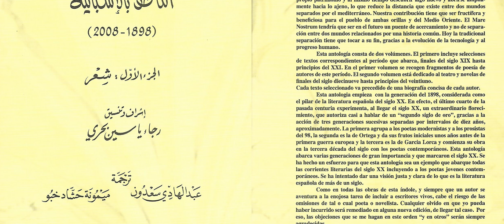 الناطق بالإسبانية
(2008-1898)
الجزء الأول: شعر
إشراف وتحقيق
رجاء ياسين بحري
ترجمة
عبد الهادي سعدون
ميمونة حشاد خبو
hacia lo ajeno, lo que reduce la distancia que existe entre dos mundos
separados por el mediterráneo. Nuestra contribución tiene que ser fructífera y
beneficiosa para el pueblo de ambas orillas y del Medio Oriente. El Mare
Nostrum tendría que ser en el futuro un puente de acercamiento y no de separa-
ción entre dos mundos relacionados por una historia común. Hoy la tradicional
separación tiene que tocar a su fin, gracias a la evolución de la tecnología y al
progreso humano.
Esta antología consta de dos volúmenes. El primero incluye selecciones
de textos correspondientes al período que abarca, finales del siglo XIX hasta
principios del XXI. En el primer volumen se recogen fragmentos de poesía de
autores de este período. El segundo volumen está dedicado al teatro y novelas de
finales del siglo diecinueve hasta principios del veintiuno.
Cada texto seleccionado va precedido de una biografía concisa de cada autor.
Esta antología empieza con la generación del 1898, considerada como
el pilar de la literatura española del siglo XX. En efecto, el último cuarto de la
pasada centuria experimenta, al llegar el siglo XX, un extraordinario floreci-
miento, que autoriza casi a hablar de un "segundo siglo de oro", gracias a la
acción de tres generaciones sucesivas separadas por intervalos de diez años,
aproximadamente. La primera agrupa a los poetas modernistas y a los prosistas
del 98, la segunda es la de Ortega y da sus frutos iniciales unos años antes de la
primera guerra europea y la tercera es la de García Lorca y comienza su obra
en la tercera década del siglo con los poetas contemporáneos. Esta antología
abarca varias generaciones de gran importancia y que marcaron el siglo XX. Se
ha hecho un esfuerzo para que esta antología sea un ejemplo que abarque todas
las corrientes literarias del siglo XX incluyendo a los poetas jóvenes contem-
poráneos. Se ha intentado dar una visión justa y clara de lo que es la literatura
española de más de un siglo.
Como en todas las obras de esta índole, y siempre que un autor se
aventura a la enojosa tarea de incluir a escritores vivos, cabe el riesgo de las
omisiones de tal o cual poeta o novelista. Cualquier olvido en que yo pueda
haber incurrido será remediado en alguna nueva edición, de llegar tal caso. Por
eso, las objeciones que se me hagan en este orden "y en otros" serán siempre